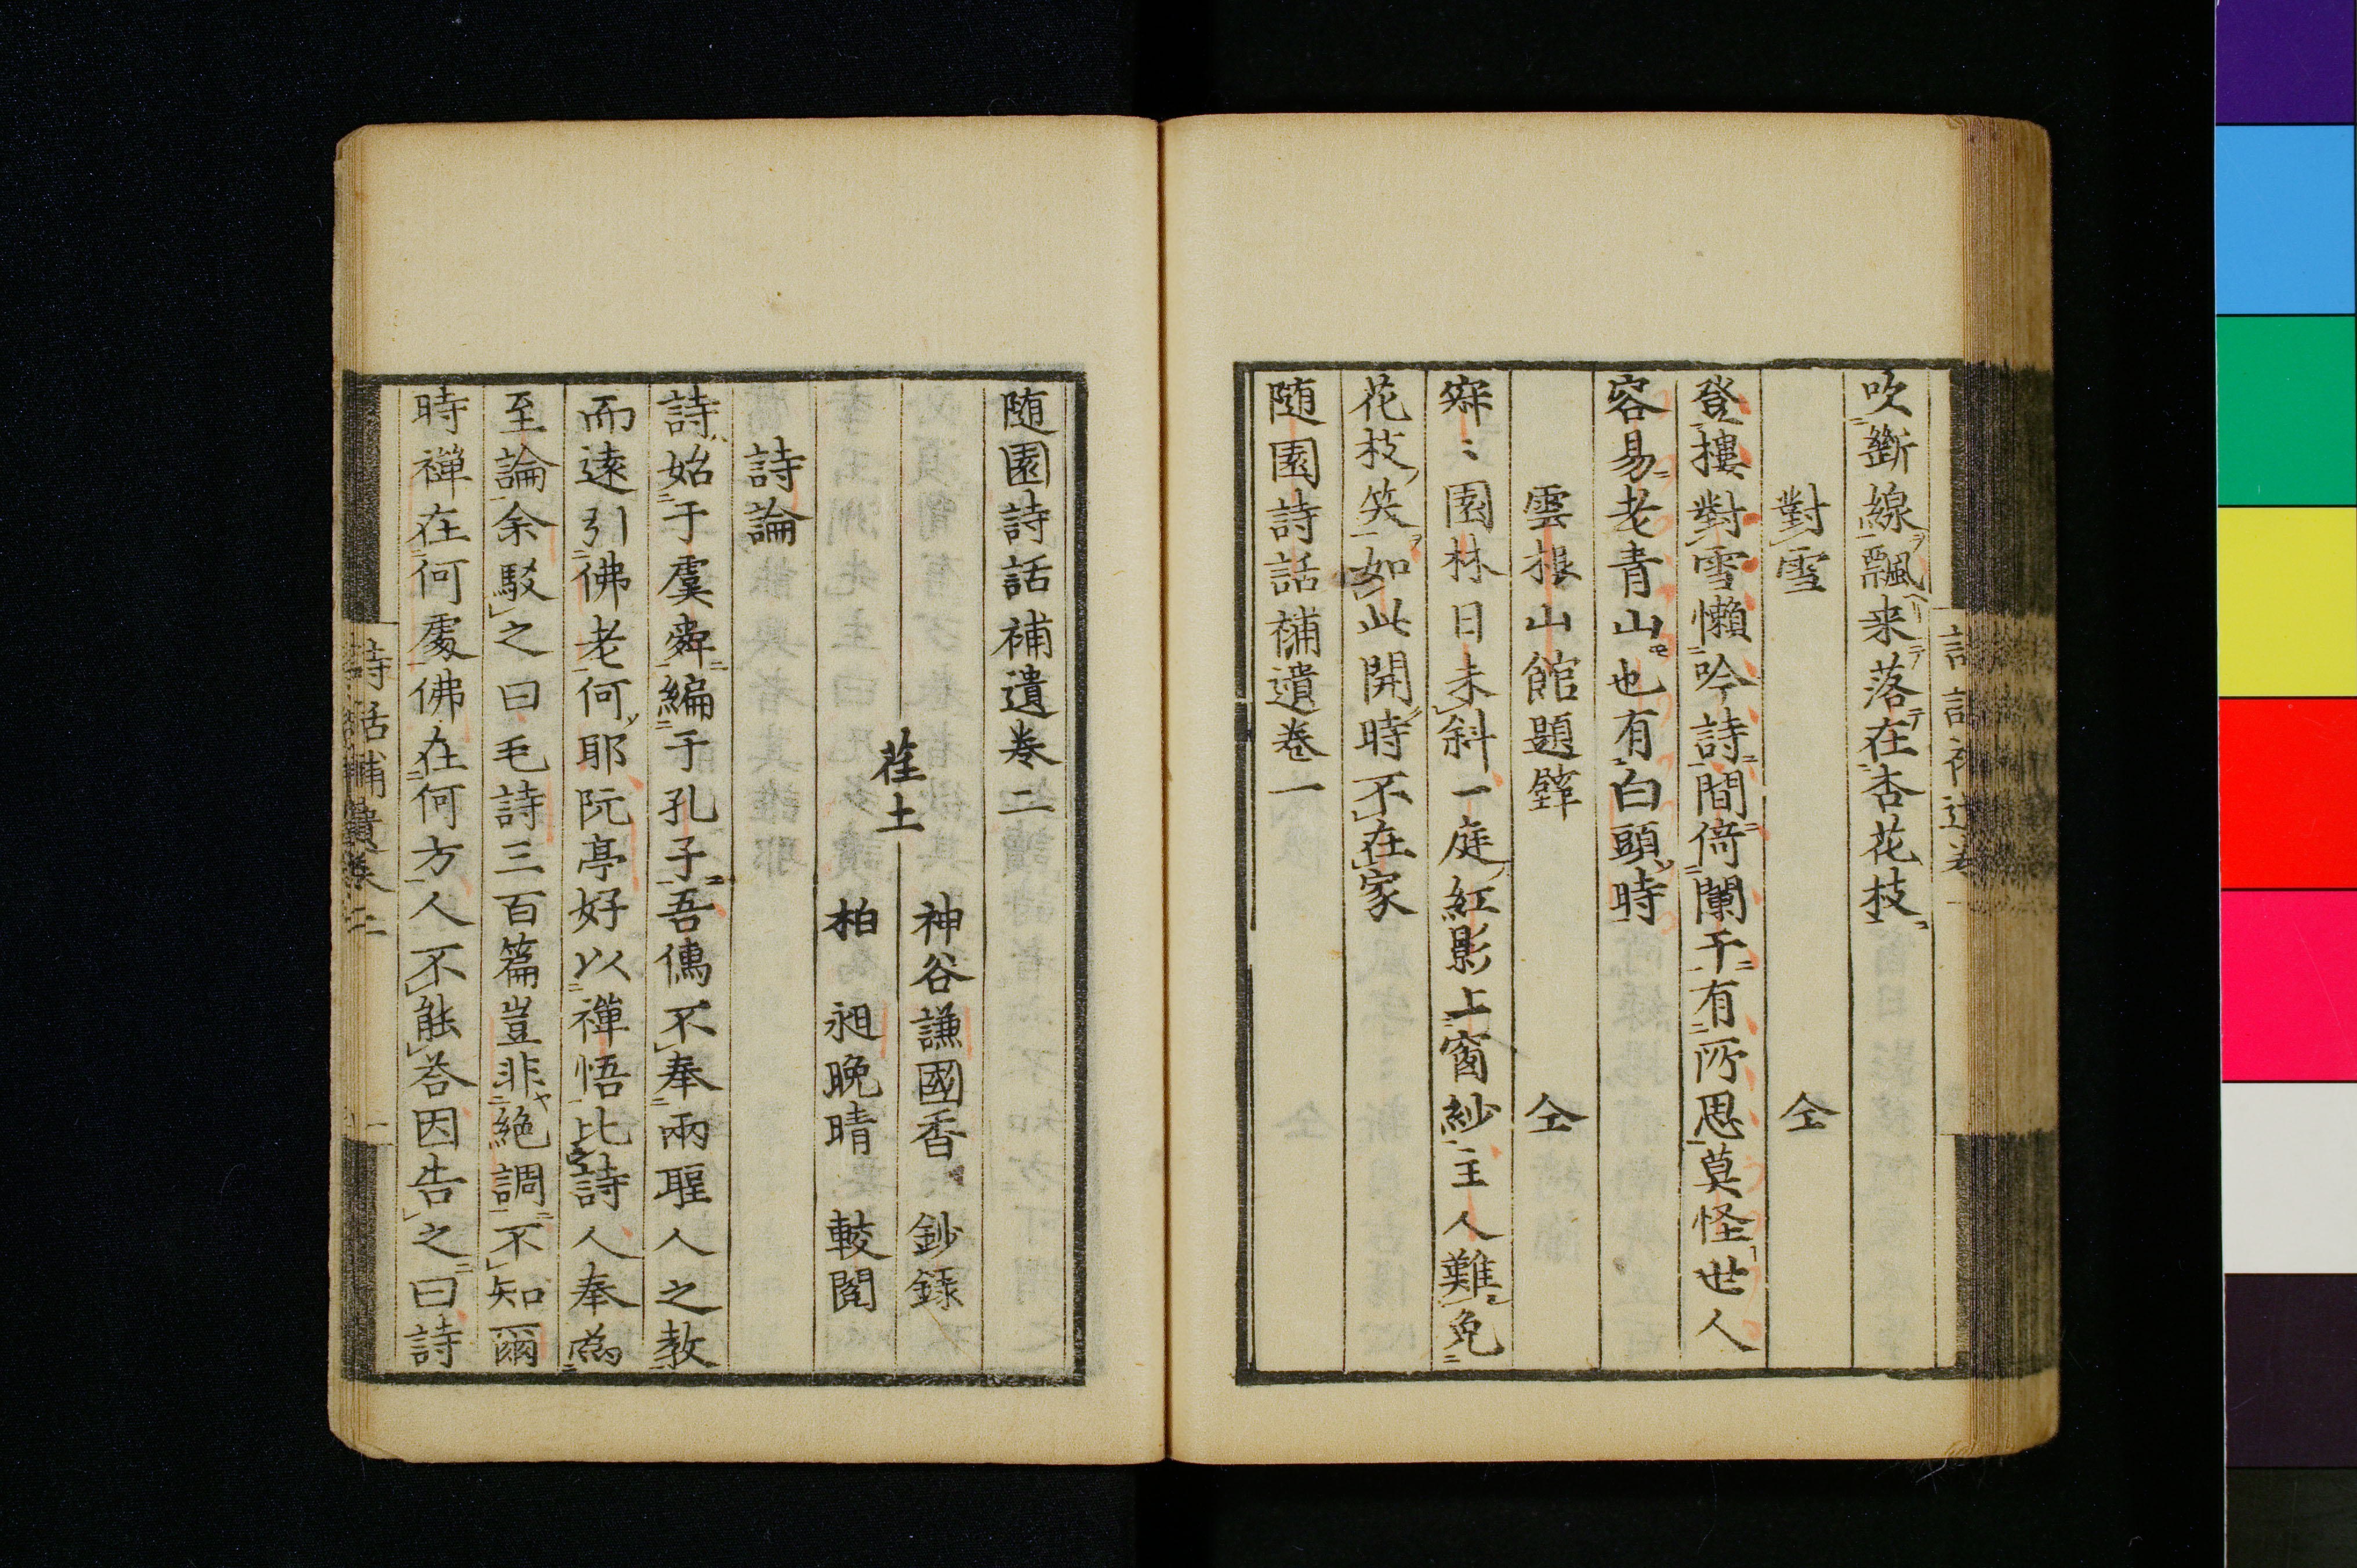 吹斷線飄来落在杏花枝
對雪 仝
登樓對雪懶吟詩間倚闌干有所思莫怪世人
容易老青山也有白頭時
雲根山館題壁 仝
寂〻園林日未斜一庭紅影上窗紗主人難免
花枝笑如此開時不在家
随園詩話補遺卷一
随園詩話補遺巻二
荏土
神谷謙國香 鈔録
柏 昶晩晴 較閲
詩論
詩始于虞舜編于孔子吾儒不奉兩聖人之教
而遠引佛老何耶阮亭好以禅悟比詩人奉爲
至論余駁之曰毛詩三百篇豈非絶調不知爾
時禅在何處佛在何方人不能荅因告之曰詩
詩話補遺巻二 一